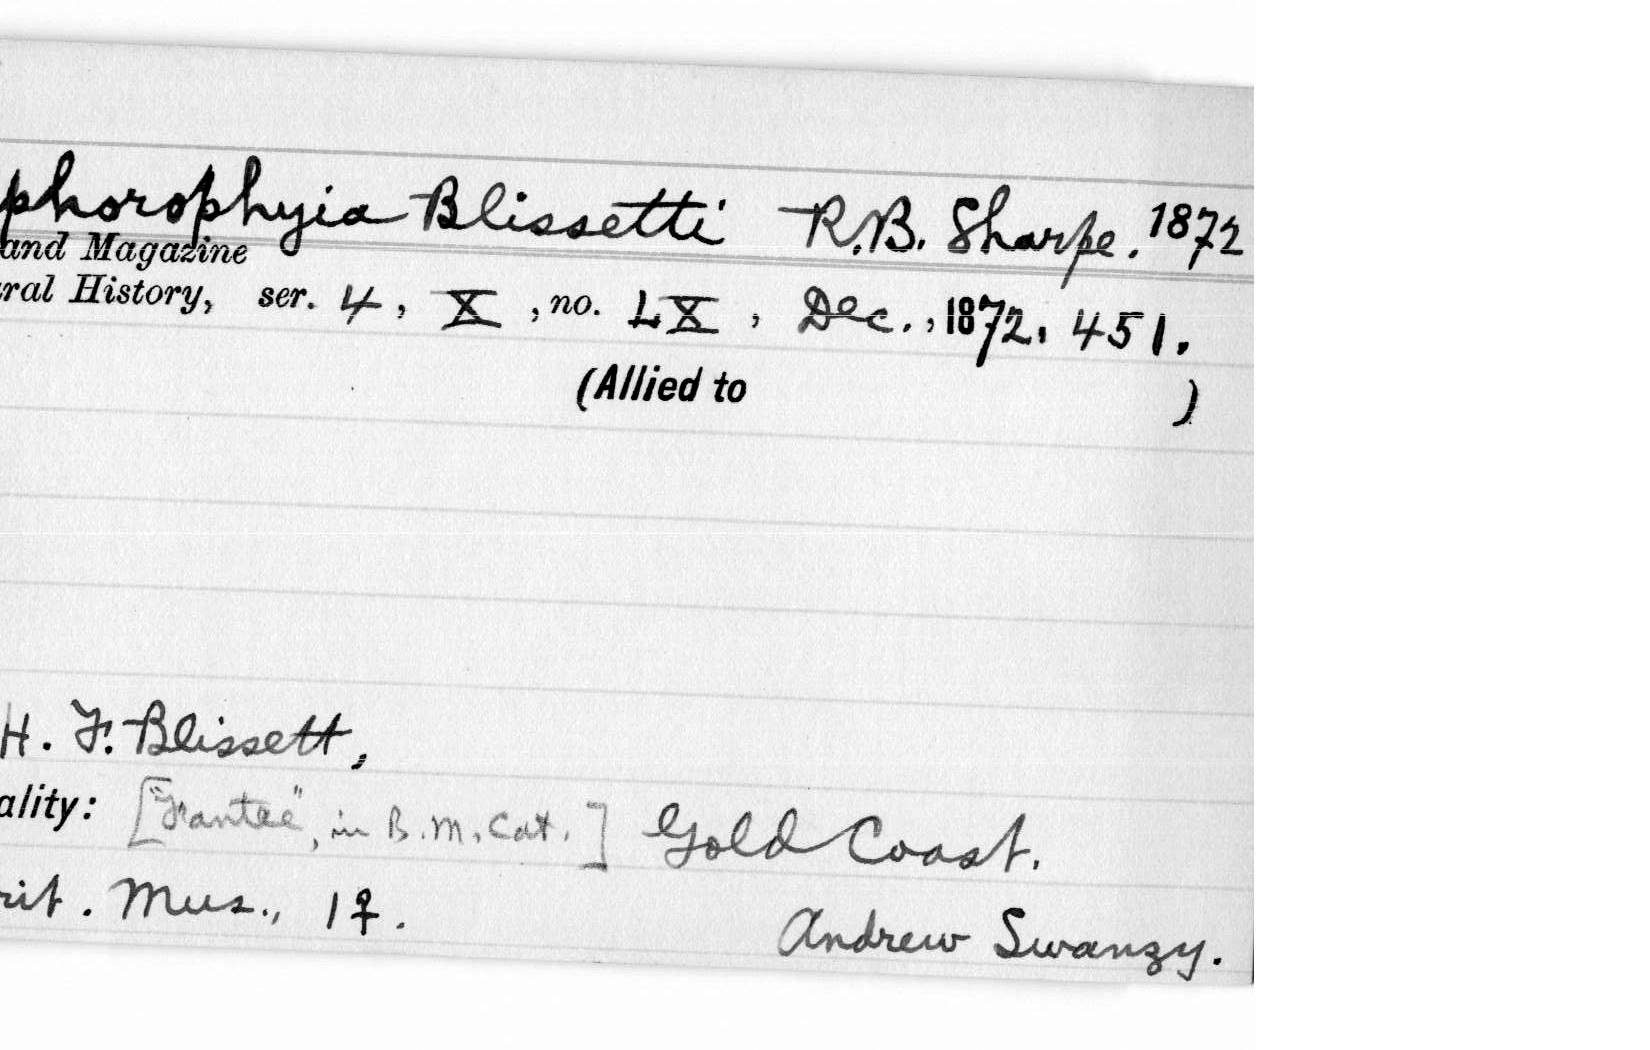 phorophyia Blissetti R.B. Sharpe. 1872
and Magazine
ral History, ser. 4, X, no. LX, Dec., 1872, 451.
(Allied to )
H. F. Blissett,
ality: ["Frantee", in B.M. Cat.] Gold Coast.
rit. Mus., 1♀. Andrew Swanzy.